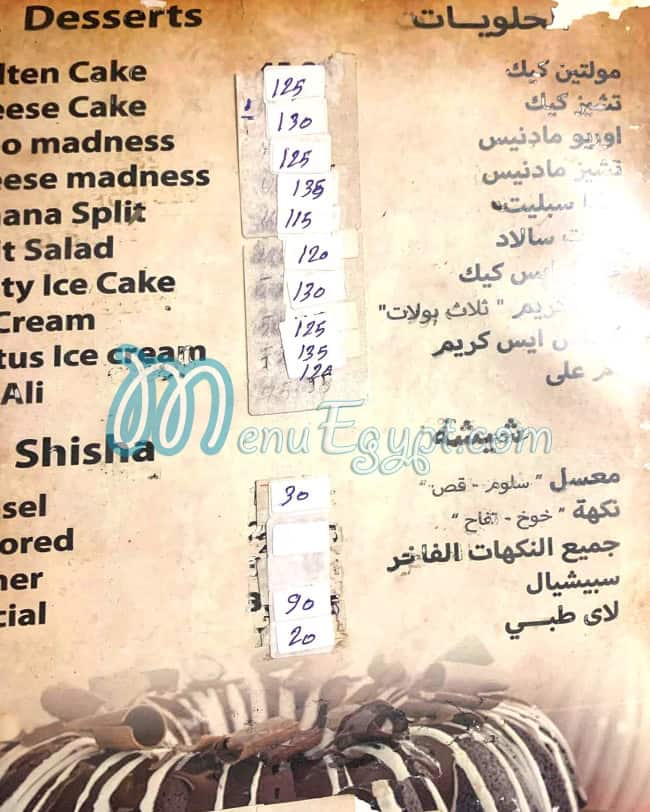 Desserts الحلويات
lten Cake 125 مولتين كيك
eese Cake 130 تشيز كيك
o madness 125 اوريو مادنيس
eese madness 135 تشيز مادنيس
ana Split 115 سبليت
it Salad 120 سالاد
ty Ice Cake 130 ايس كيك
Cream 125 كريم " ثلاث بولات"
tus Ice cream 135 ايس كريم
Ali 120 م على
MenuEgypt.com
Shisha شيشة
sel 30 معسل " سلوم - قص "
ored نكهة " خوخ - تفاح "
ner جميع النكهات الفاخر
cial 90 سبيشيال
20 لاى طبي